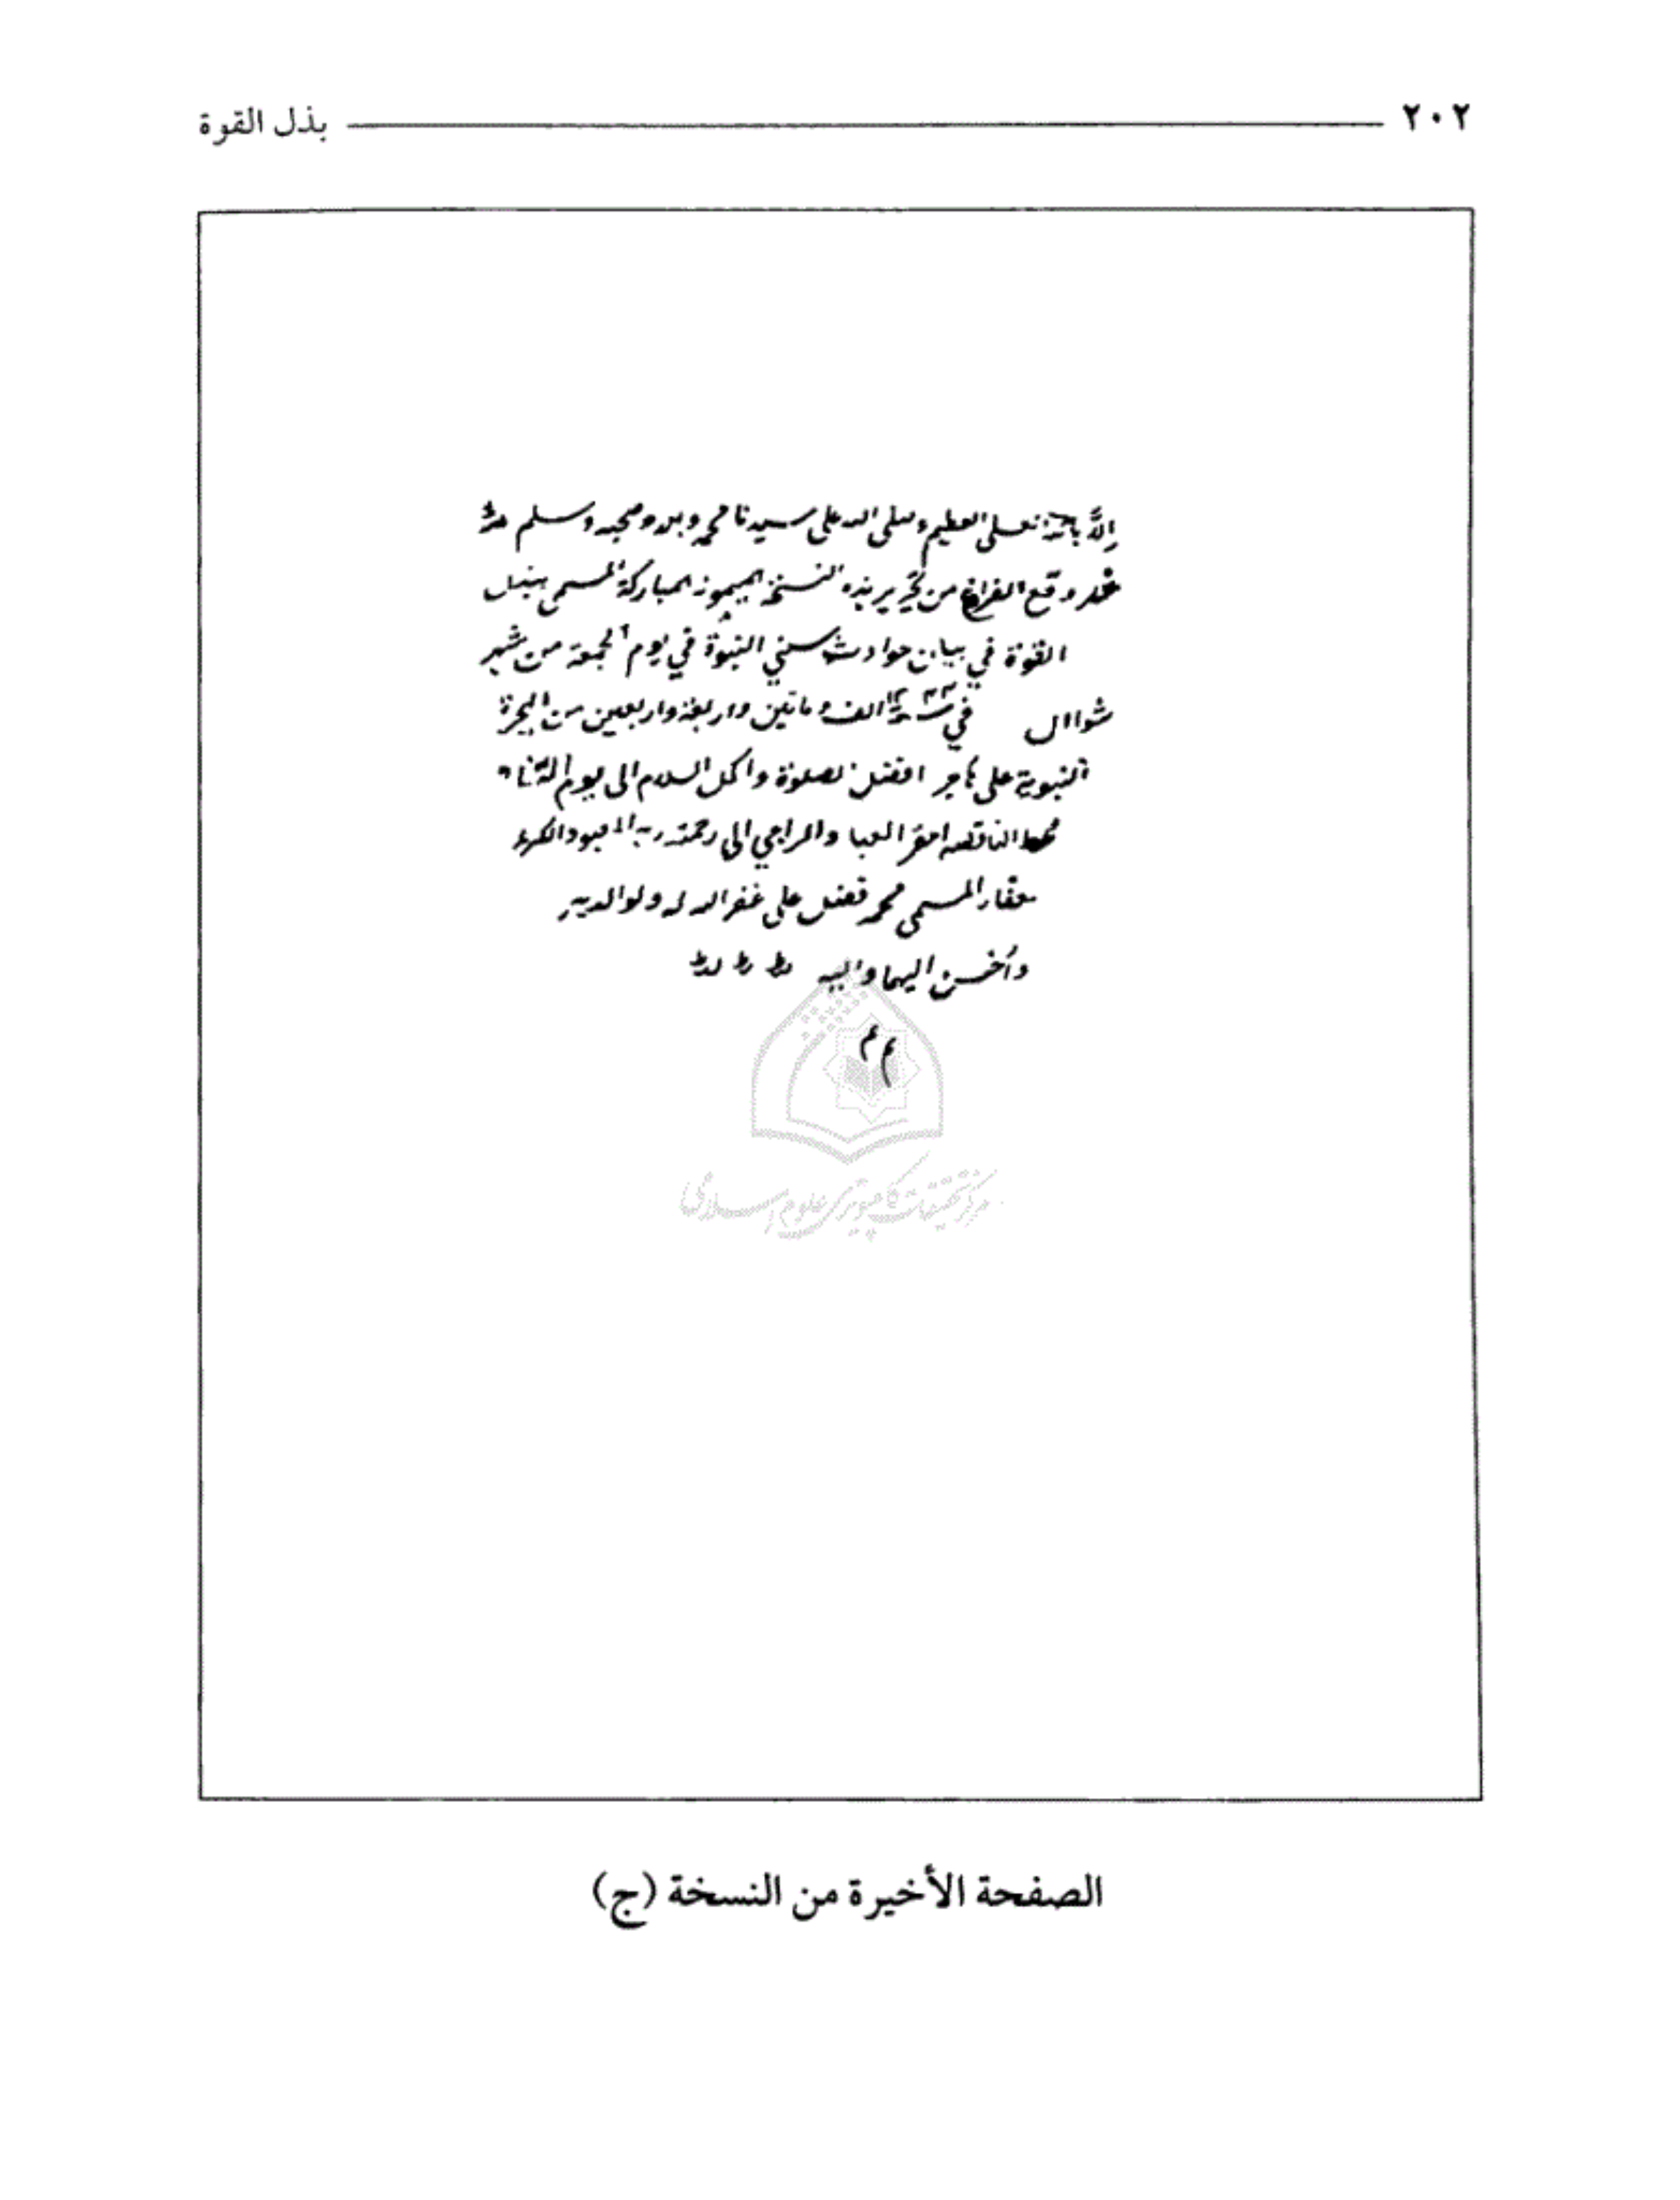 ٢٠٢ بذل القوة
إلَّا بالله العلى العظيم وصلى الله على سيدنا محمد وآله وصحبه وسلم
قد وقع الفراغ من تحرير هذه النسخة الميمونة المباركة المسمى ببذل
القوة في بيان حوادث سني النبوة في يوم الجمعة من شهر
شوال في سنة الف وماتين واربعة واربعين من الهجرة
النبوية على افضل الصلوة واكمل السلام الى يوم
الناقصه احقر العباد الراجي الى رحمة ربه المعبود
المسمى محمد فضل على غفر الله له ولوالديه
وأحسن اليهما واليه
مركز تحقيقات كامپيوترى علوم اسلامى
الصفحة الأخيرة من النسخة (ج)